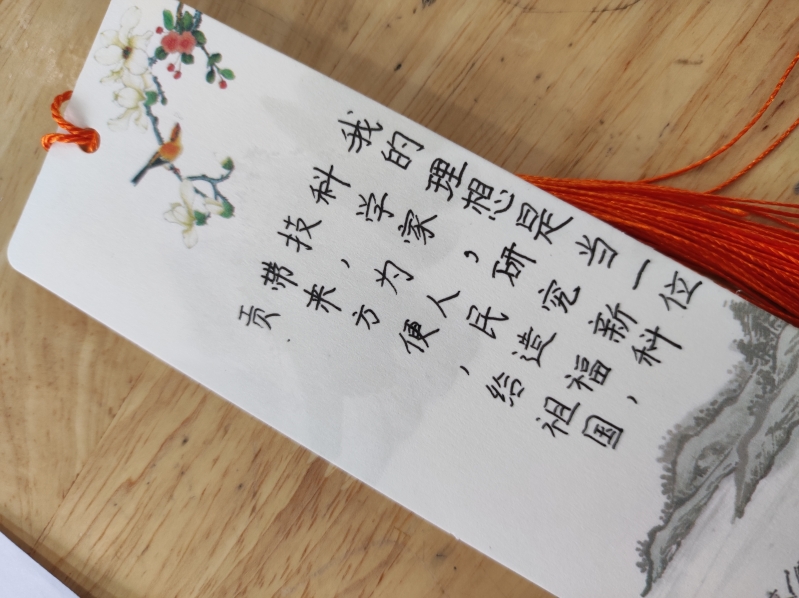 我的理想是当一位
科学家，研究新科
技，为人民造福，
带来方便，给祖国
贡.